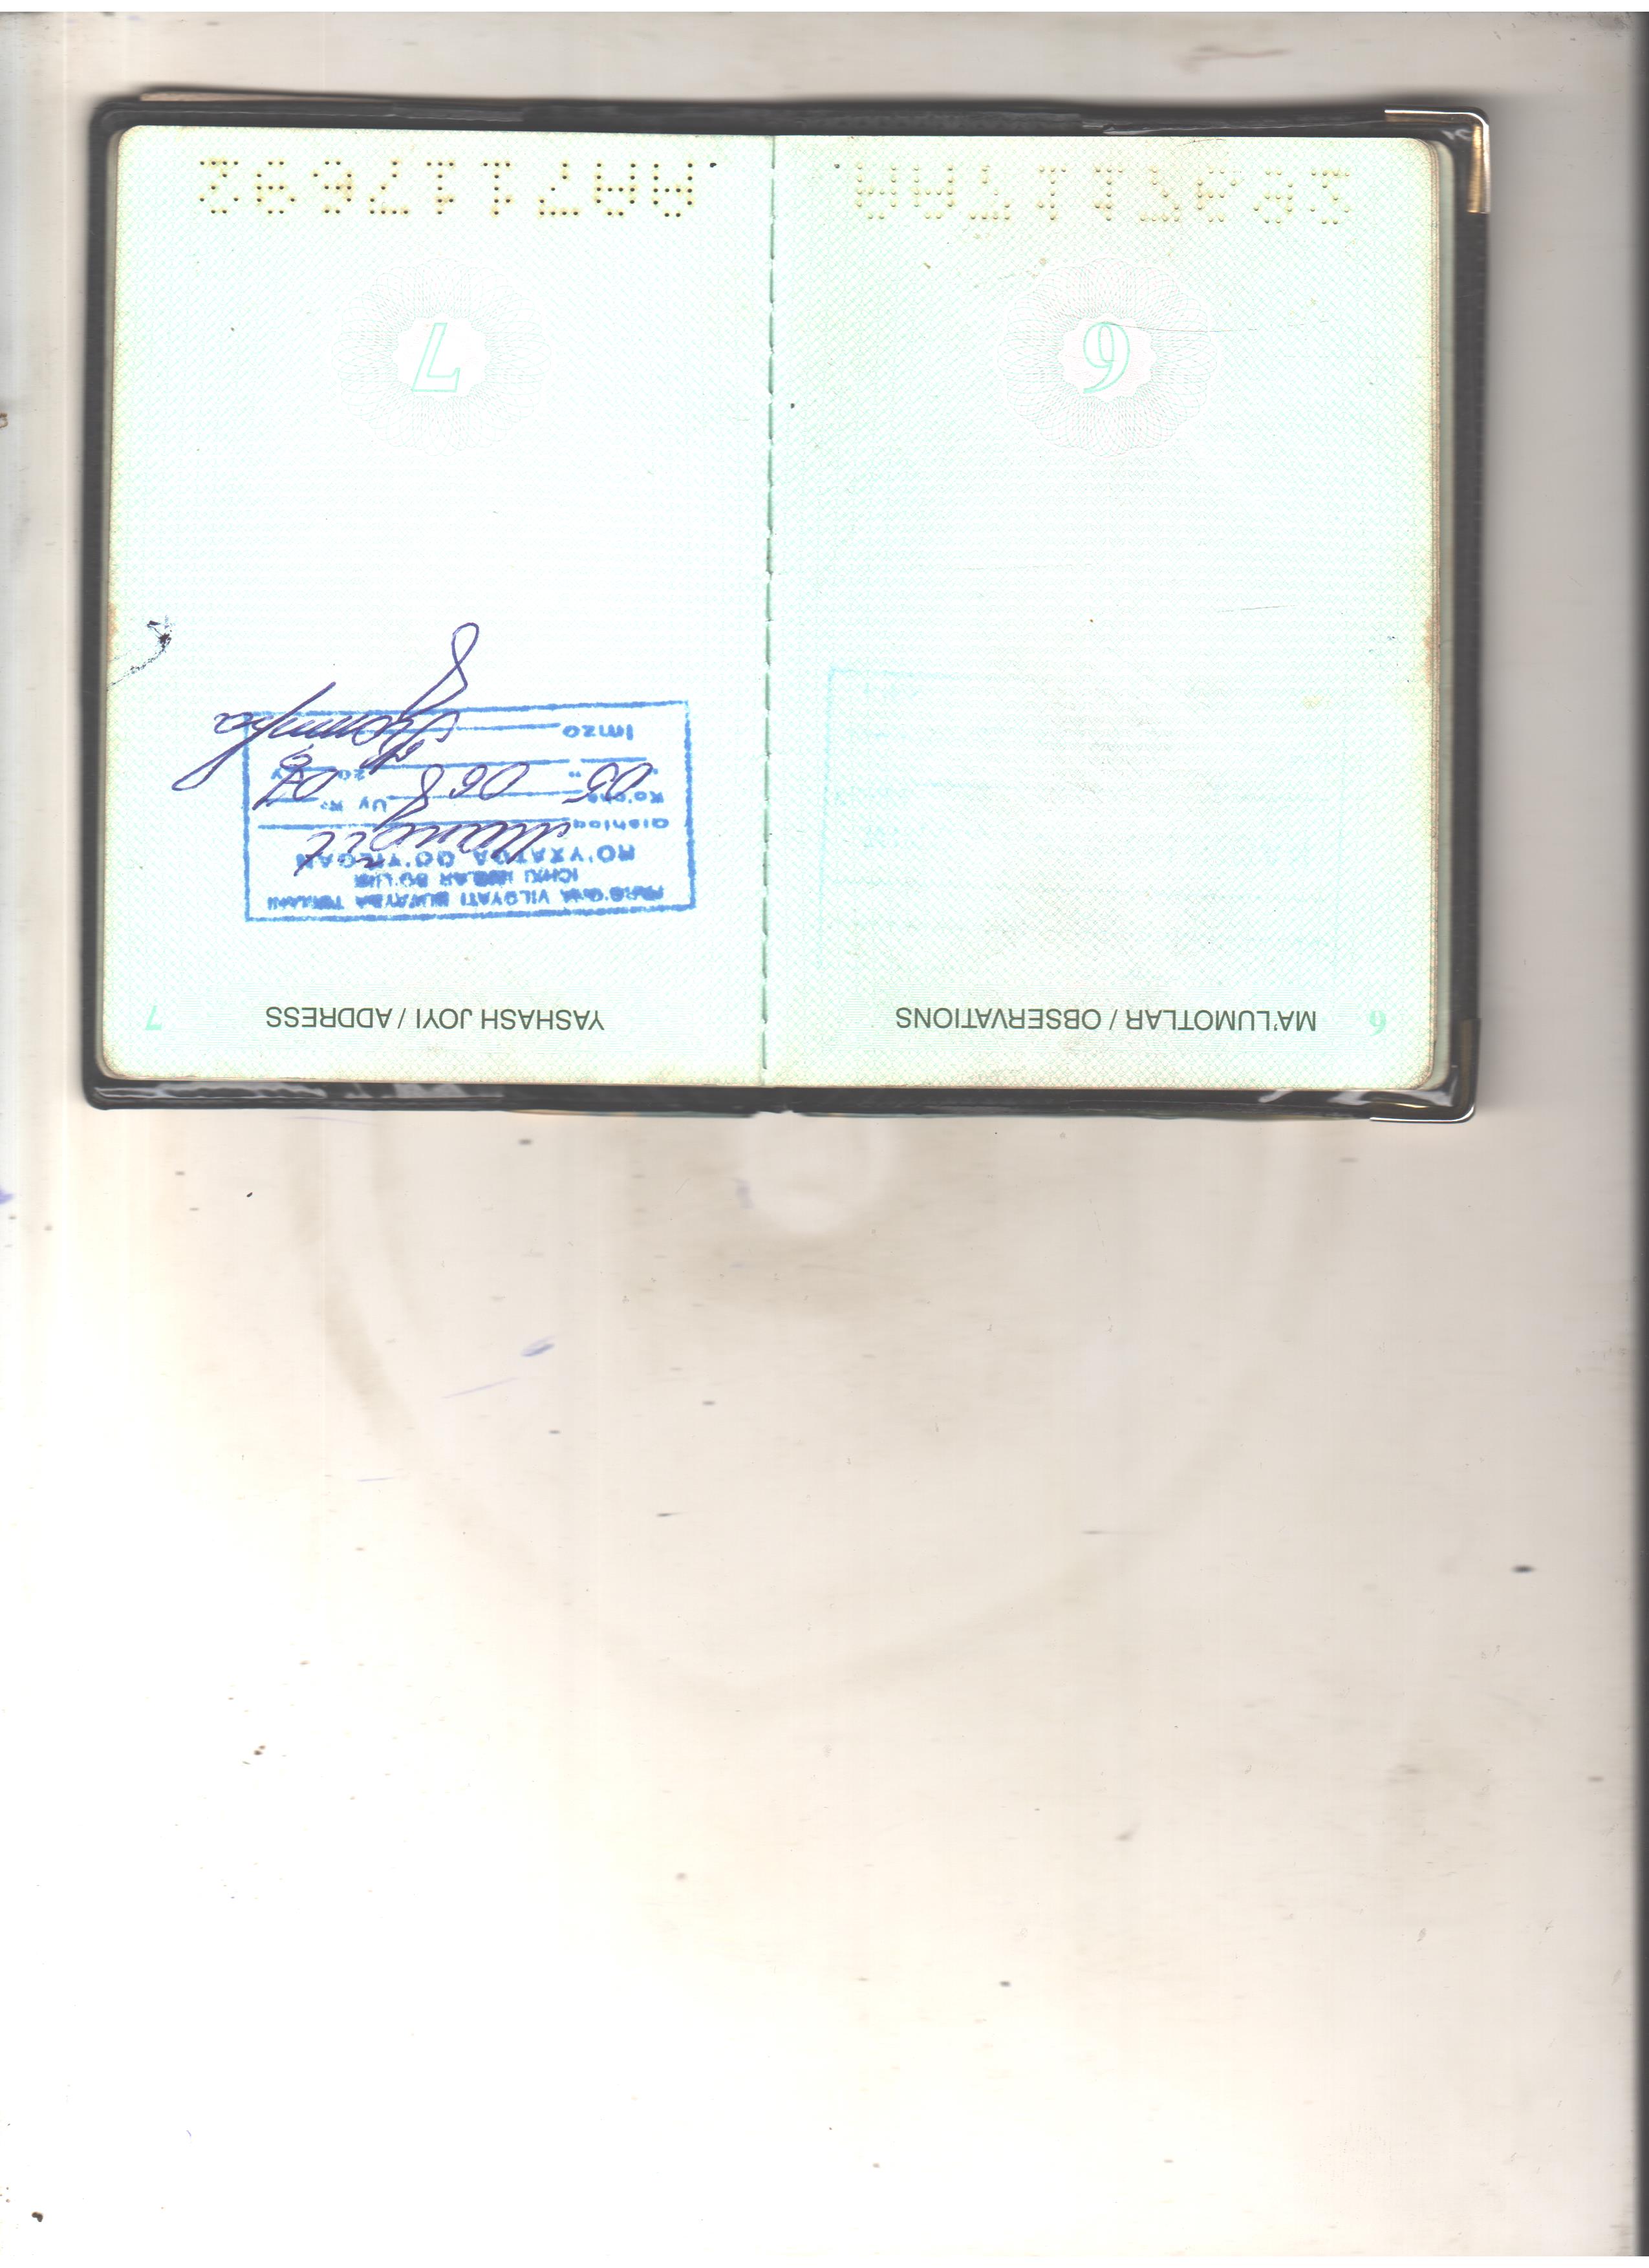 6 MA'LUMOTLAR / OBSERVATIONS
YASHASH JOYI / ADDRESS 7
FARG'ONA VILOYATI BUVAYDA TUMANI
ICHKI ISHLAR BO'LIMI
RO'YXATGA QO'YILGAN
Qishloq Mangit
Ko'cha Uy №
"05" 06 2007 y
Imzo
6
7
AA7117692
AA7117692